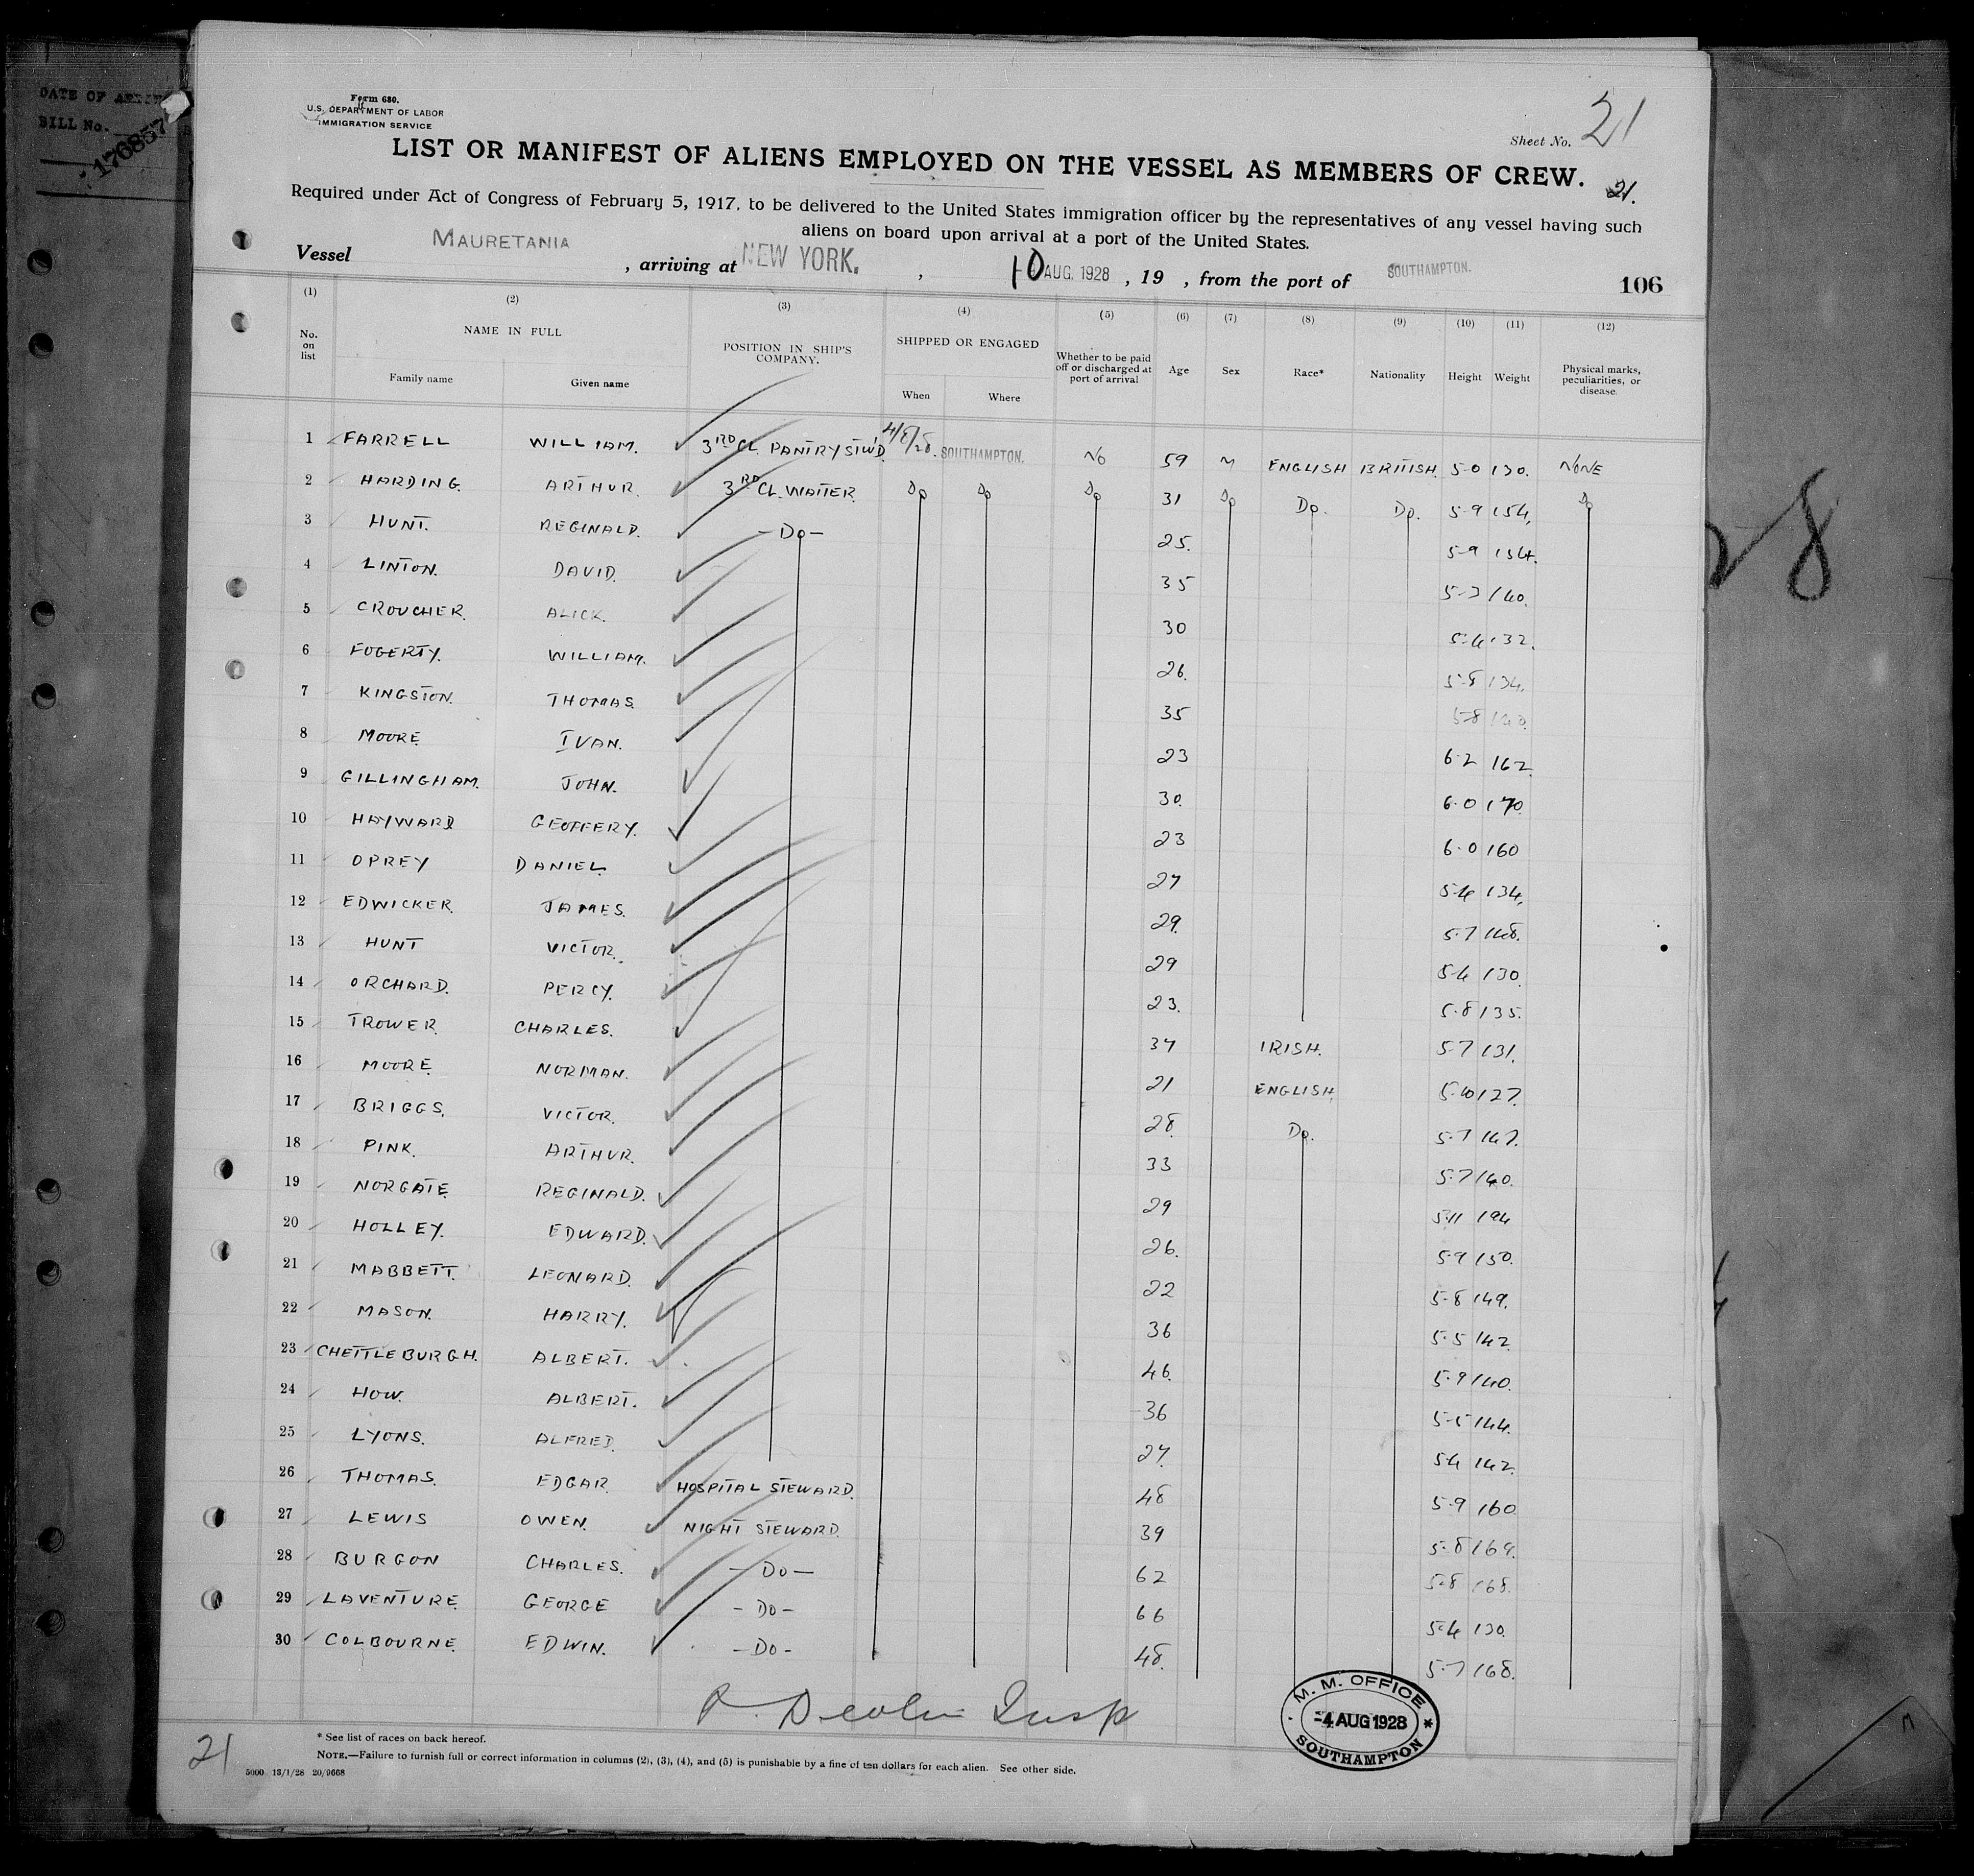 DATE OF
BILL No.
176857
Form 680.
U.S. DEPARTMENT OF LABOR
IMMIGRATION SERVICE
Sheet No. 21
LIST OR MANIFEST OF ALIENS EMPLOYED ON THE VESSEL AS MEMBERS OF CREW.
21.
Required under Act of Congress of February 5, 1917, to be delivered to the United States immigration officer by the representatives of any vessel having such
aliens on board upon arrival at a port of the United States.
Vessel MAURETANIA, arriving at NEW YORK. , 10 AUG. 1928 , 19 , from the port of SOUTHAMPTON. 106
(1) (2) (3) (4) (5) (6) (7) (8) (9) (10) (11) (12)
No. on list NAME IN FULL Family name Given name POSITION IN SHIP'S COMPANY. SHIPPED OR ENGAGED When Where Whether to be paid off or discharged at port of arrival Age Sex Race* Nationality Height Weight Physical marks, peculiarities, or disease.
1 FARRELL WILLIAM. 3RD CL. PANTRY STW'D 4/8/28. SOUTHAMPTON. NO 59 M ENGLISH BRITISH. 5-0 130. NONE
2 HARDING. ARTHUR. 3RD CL. WAITER. Do Do Do 31 Do Do. Do. 5-9 154. Do
3 HUNT. REGINALD. -Do- 25. 5-9 134.
4 LINTON. DAVID. 35 5-7 140.
5 CROUCHER. ALICK. 30 5-4 132.
6 FOGERTY. WILLIAM. 26. 5-8 134.
7 KINGSTON. THOMAS. 35 5-8
8 MOORE. IVAN. 23 6-2 162.
9 GILLINGHAM. JOHN. 30. 6-0 170.
10 HAYWARD GEOFFERY. 23 6-0 160
11 OPREY DANIEL. 27 5-4 134.
12 EDWICKER. JAMES. 29. 5-7 148.
13 HUNT VICTOR. 29 5-4 130.
14 ORCHARD. PERCY. 23. 5-8 135.
15 TROWER. CHARLES. 37 IRISH. 5-7 131.
16 MOORE. NORMAN. 21 ENGLISH. 5-10 127.
17 BRIGGS. VICTOR. 28. Do. 5-7 147.
18 PINK. ARTHUR. 33 5-7 140.
19 NORGATE. REGINALD. 29 5-11 194
20 HOLLEY. EDWARD. 26. 5-9 150.
21 MABBETT. LEONARD. 22 5-8 149.
22 MASON. HARRY. 36 5-5 142.
23 CHETTLEBURGH. ALBERT. 46. 5-9 140.
24 HOW. ALBERT. 36 5-5 144.
25 LYONS. ALFRED. 27. 5-4 142.
26 THOMAS. EDGAR. HOSPITAL STEWARD. 48 5-9 160.
27 LEWIS OWEN. NIGHT STEWARD. 39 5-8 169.
28 BURGON CHARLES. -Do- 62 5-8 168.
29 LAVENTURE. GEORGE -Do- 66 5-4 130.
30 COLBOURNE. EDWIN. -Do- 48. 5-7 168.
Insp
M. M. OFFICE
-4 AUG 1928
SOUTHAMPTON
* See list of races on back hereof.
NOTE.—Failure to furnish full or correct information in columns (2), (3), (4), and (5) is punishable by a fine of ten dollars for each alien. See other side.
21
5000 13/1/28 20/9668
28